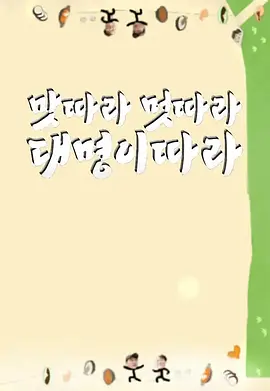 맛따라 멋따라
태명이따라